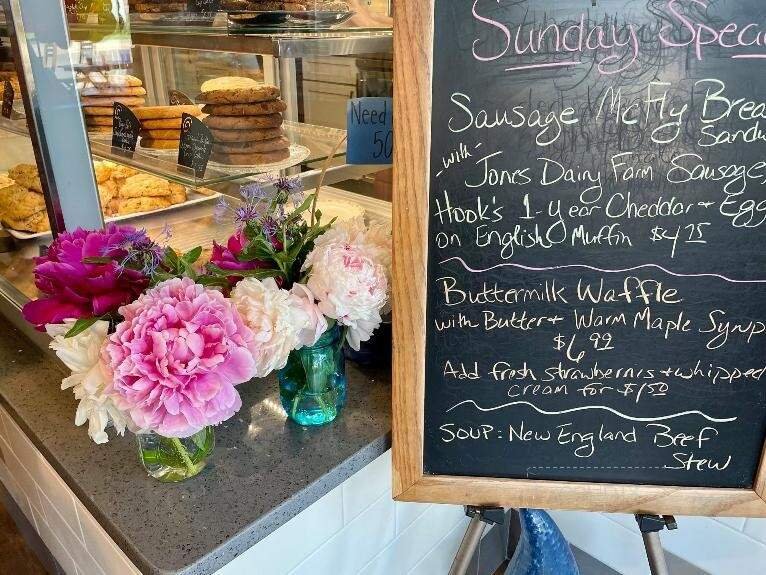 Sunday Spec
Sausage McFly Brea
Sandw
-with- Jones Dairy Farm Sausage,
Hook's 1-year Cheddar + Egg
on English Muffin $4.25
Buttermilk Waffle
with Butter + Warm Maple Syrup
$6.99
Add fresh strawberries + whipped
cream for $1.50
Soup: New England Beef
Stew
Need
50